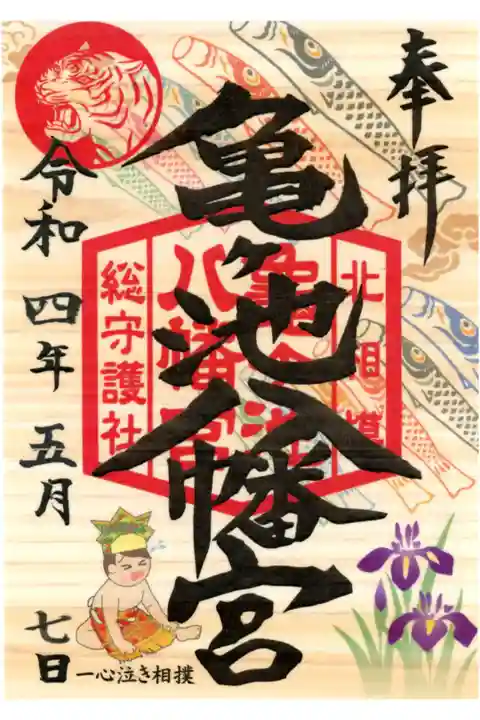 奉拝
北相模
亀ヶ池
八幡宮
総守護社
亀ヶ池八幡宮
令和四年五月七日
一心泣き相撲